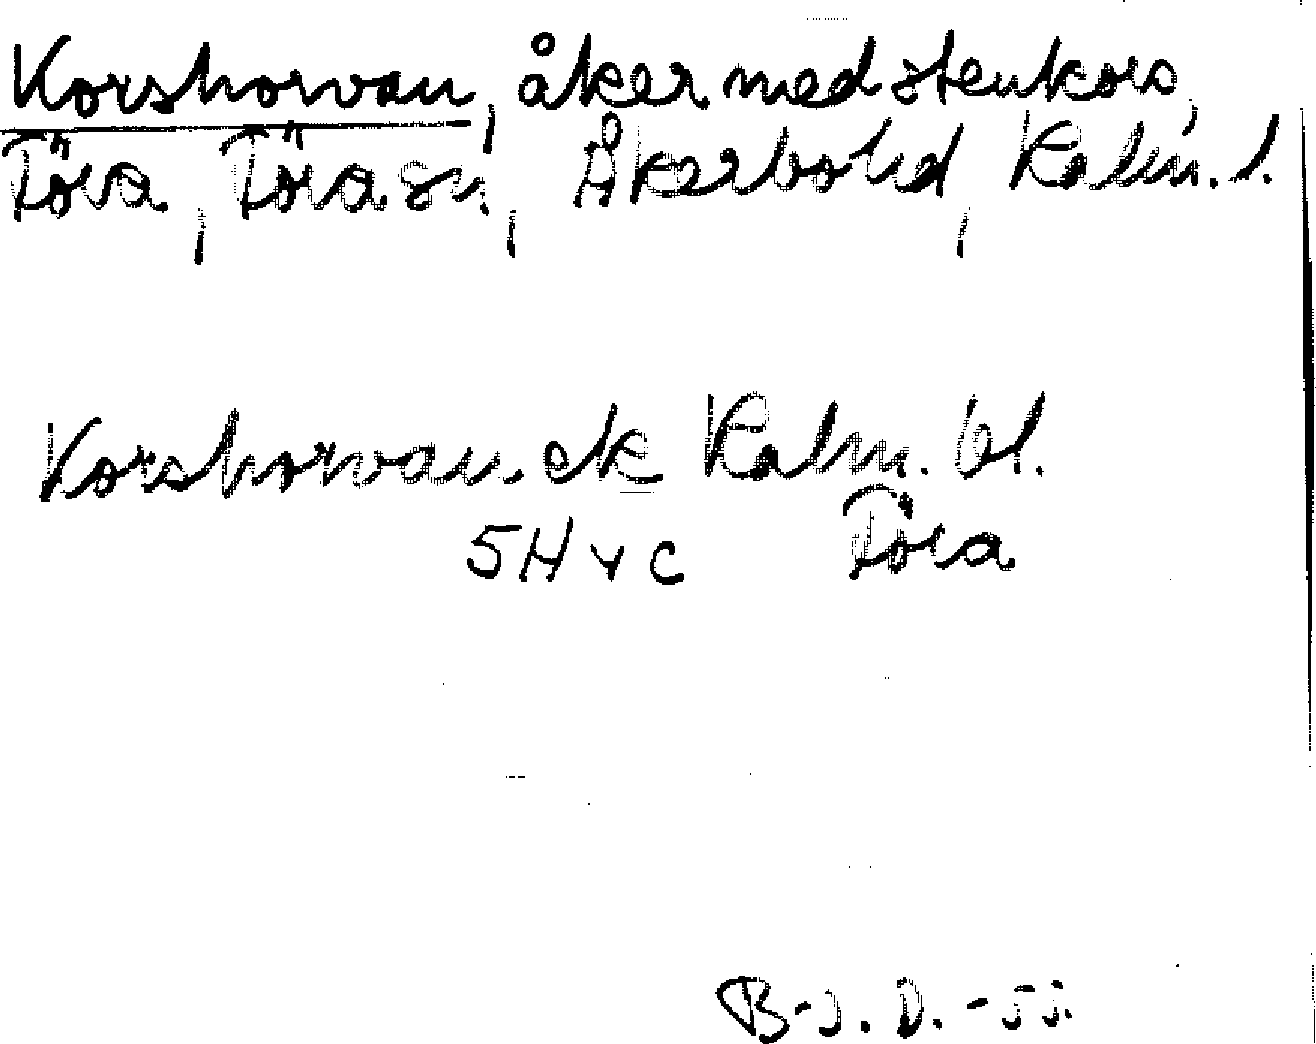 Korshorvan, åker med stenkors,
Föra, Föra sn, Åkerbo hd, Kalm. l.
Korshorvan ek Kalm. öl.
5H v c Föra
B-J. D. -55.